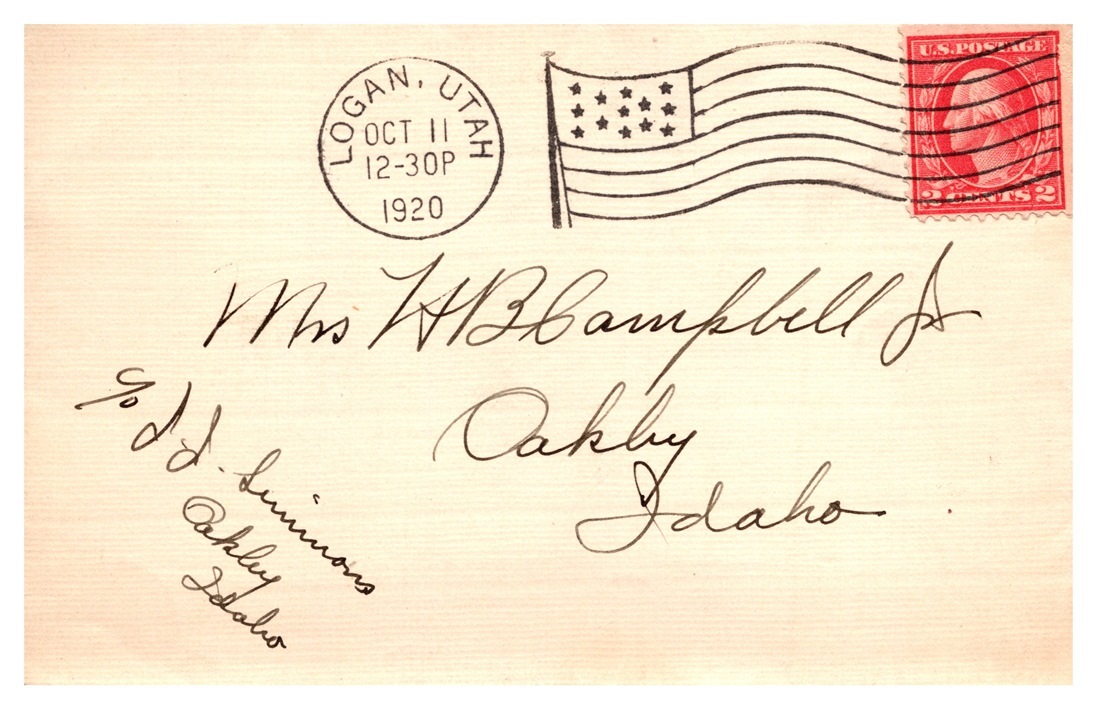 LOGAN, UTAH
OCT 11
12-30P
1920
U.S. POSTAGE
2 CENTS 2
Mrs H B Campbell Jr
Oakley
Idaho
c/o J. J. Simmons
Oakley
Idaho